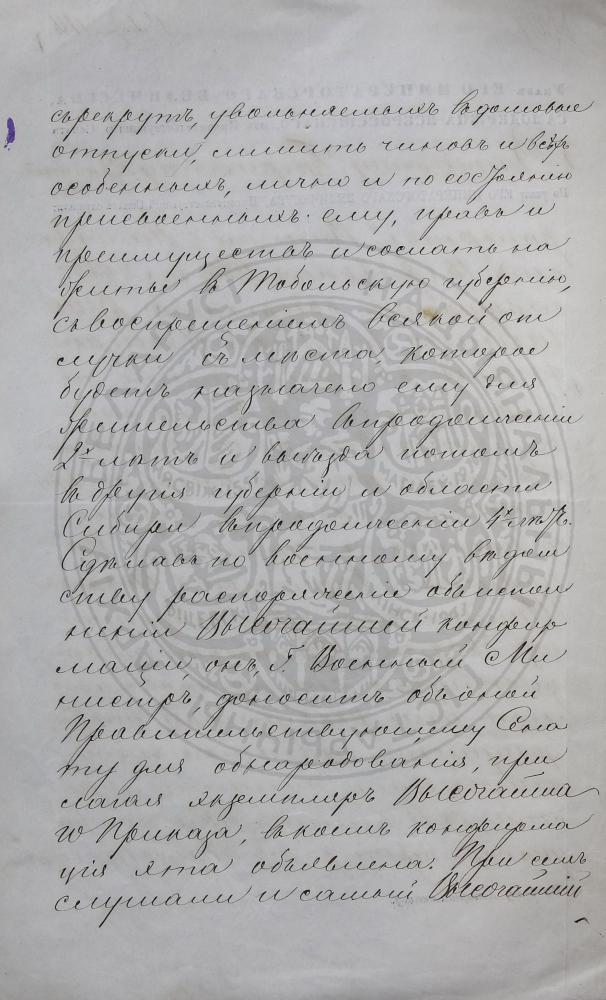 съ рекрутъ, увольняемыхъ въ домовые
отпуски, лишить чиновъ и всѣхъ
особенныхъ, лично и по состоянію
присвоенныхъ ему, правъ и
преимуществъ и сослать на
житье въ Тобольскую губернію,
съ воспрещеніемъ всякой от
лучки съ мѣста, которое
будетъ назначено ему для
жительства впродолженіи
2хъ лѣтъ и выѣзда потомъ
въ другія губерніи и области
Сибири впродолженіи 4хъ лѣтъ.
Сдѣлавъ по военному вѣдом
ству распоряженіе объ испол
неніи Высочайшей конфир
маціи, онъ, Г. Военный Ми
нистръ, доноситъ объ оной
Правительствующему Сена
ту для обнародованія, при
лагая экземпляръ Высочайша
го Приказа, въ коемъ конфирма
ція эта объявлена. При семъ
слушали и самый Высочайшій